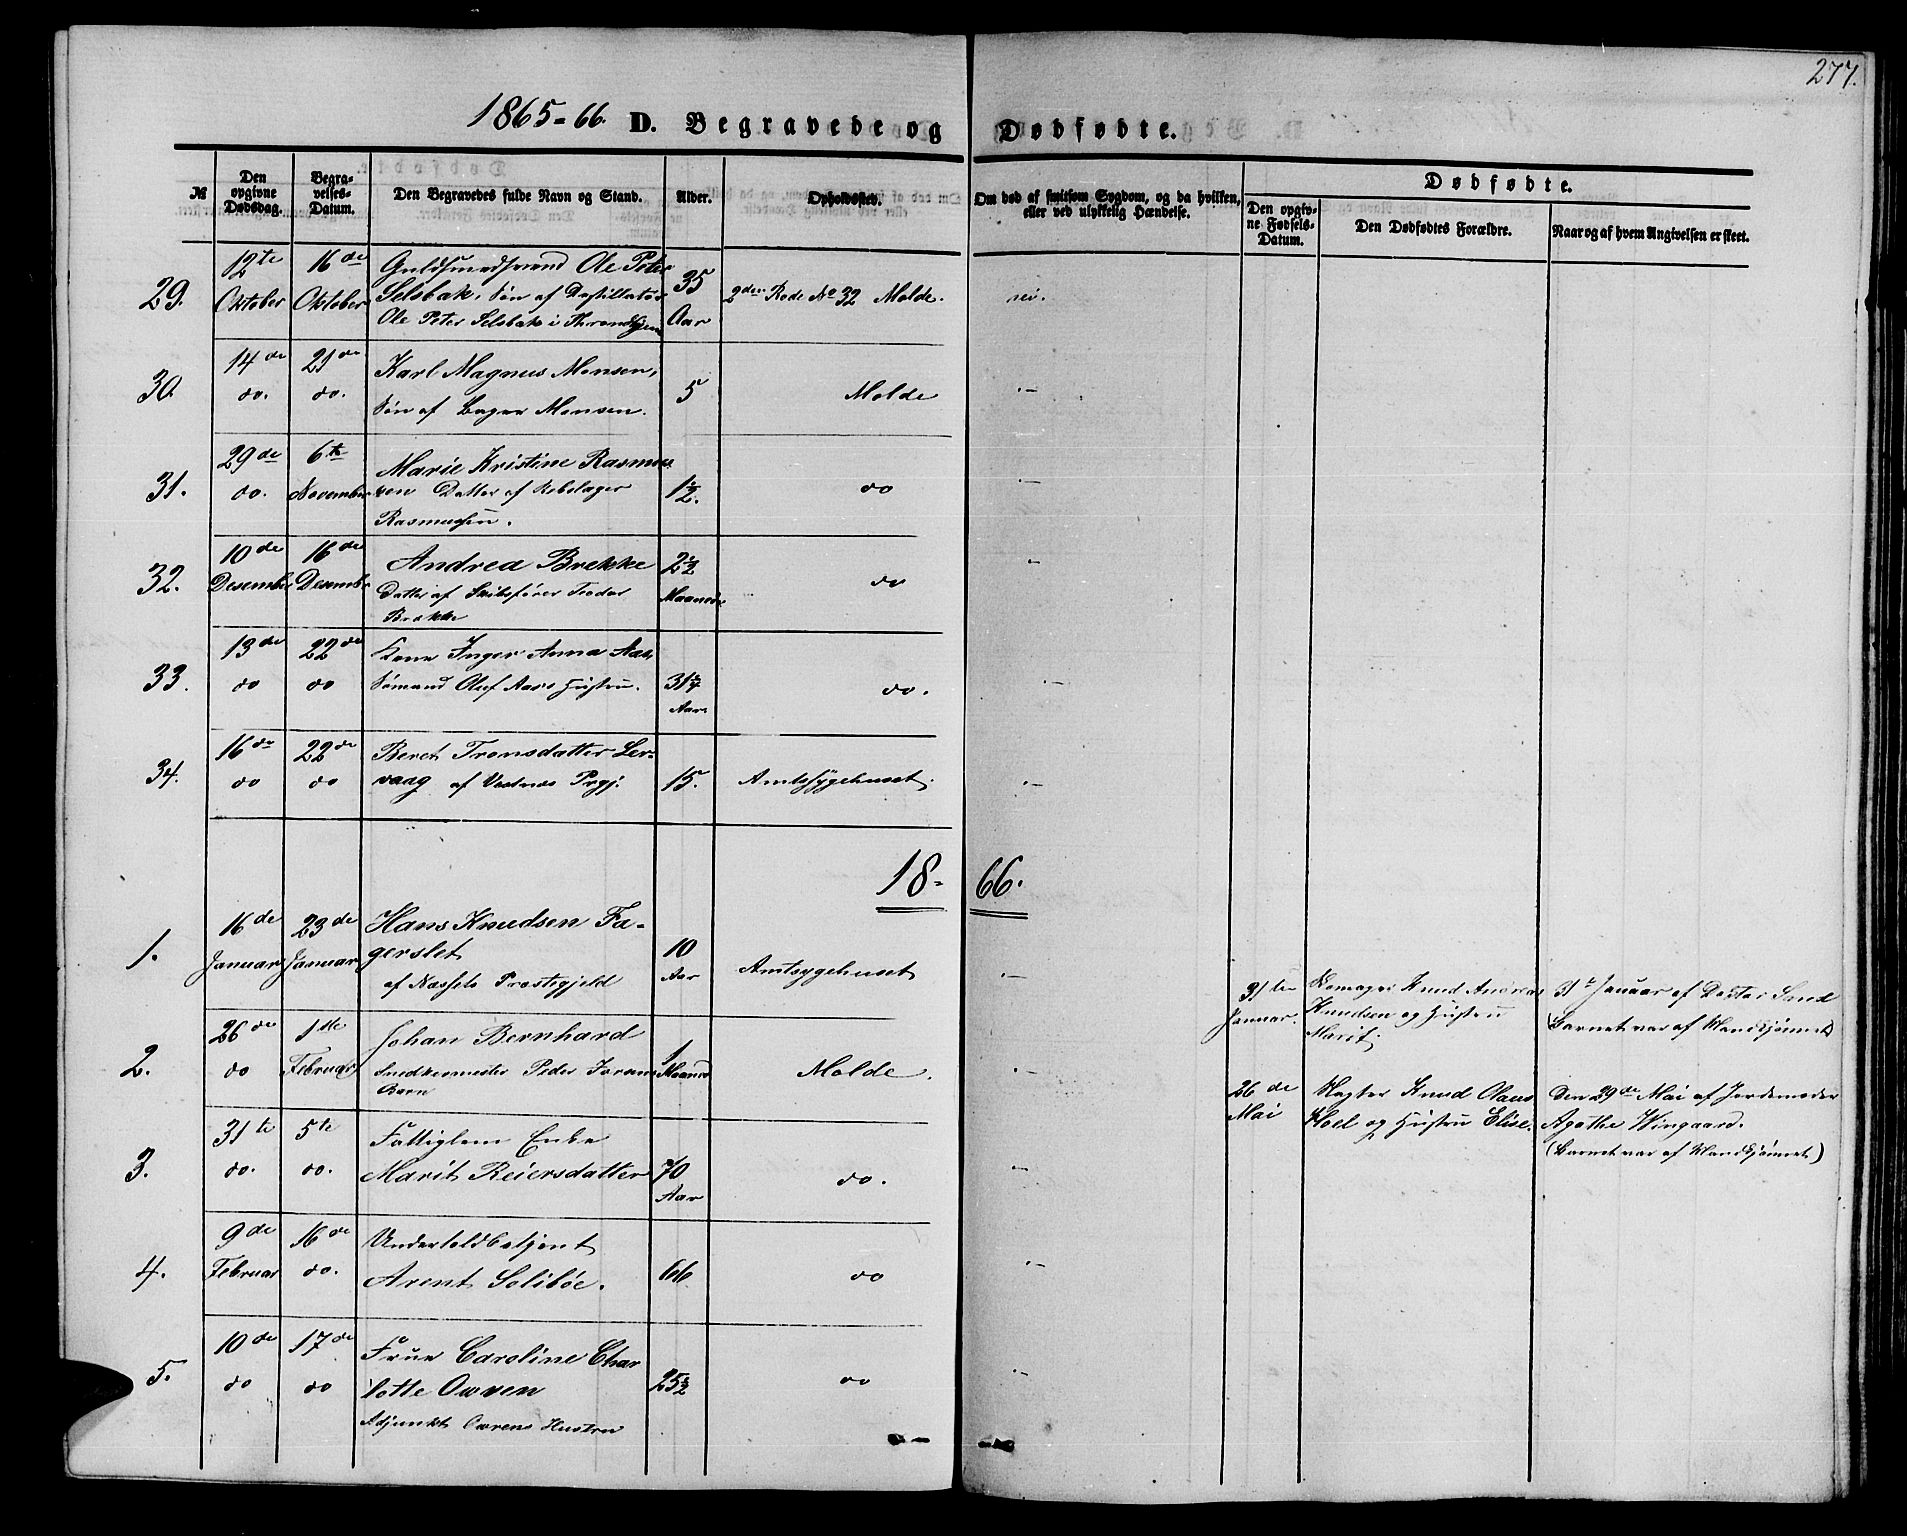 277.
1865-66. D. Begravede og Dødfødte.
№
Den opgivne Dødsdag.
Begravelses-Datum.
Den Begravedes fulde Navn og Stand.
Alder.
Opholdssted.
Om død af smitsom Sygdom, og da hvilken, eller ved ulykkelig Hændelse.
Dødfødte.
Den opgivne Fødsels-Datum.
Den Dødfødtes Forældre.
Naar og af hvem Angivelsen er skeet.
29. 12te Oktober 16de Oktober
Guldsmedsvend Ole Peter
Selsbak, Søn af Destillatør
Ole Peter Selsbak i Throndhjem
35 Aar
2den Rode No 32 Molde.
nei.
30. 14de do. 21de do.
Karl Magnus Monsen,
Søn af Bager Monsen.
5 Molde -
31. 29de do. 6te November
Marie Kristine Rasmus
sen Datter af Rebslager
Rasmussen.
1½. do -
32. 10de Desember 16de Desembr
Andrea Brekke
Datter af Skibsfører Teodor
Brekke
2½ Maaneder do -
33. 13de do 22de do
Kone Inger Anna Aas,
Sømand Oluf Aas's Hustru.
Aar do. -
34. 16de do 22de do
Beret Tronsdatter Ler-
vaag af Vestnes Prgj.
15. Amtssygehuset. -
18-66.
1. 16de Januar 23de Januar
Hans Knudsen Fa-
gerslet
af Næssets Præstegjeld
10 Aar Amtsygehuset -
2. 26de do 1ste Februar
Johan Bernhard
Snedkermester Peder
Barn
1 Maaned Molde. -
3. 31te do. 5te do.
Fattiglem Enke
Marit Reiersdatter
70 Aar do. -
4. 9de Februar 16de do.
Undertoldbetjent
Arent Solibøe.
66 do -
5. 10de do 17de do
Frue Caroline Char
lotte Owren
Adjunkt Owrens Hustru
25½ do -
31te Januar.
Knud Andreas
Knudsen og Hustru
Marit.
31te Januar af Doctor Smd
(Barnet var af Mandkjønnet)
26de Mai
Vægter Knud Olaus
Hoel og Hustru Elise.
Den 29de Mai af Jordemoder
Agathe Wingaard.
(Barnet var af Mandkjønnet)